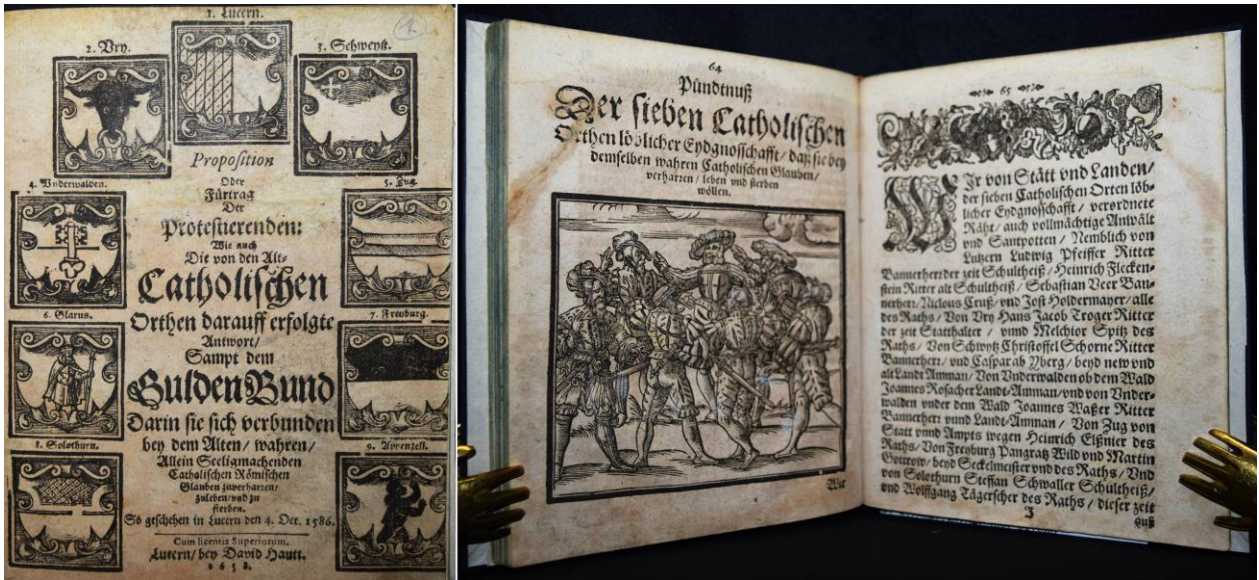 1. Lucern.
2. Vry.
3. Schweytz.
Proposition
Oder
Fürtrag
Der
4. Vnderwalden.
5. Zug.
Protestierenden:
Wie auch
Die von den Alt-
Catholischen
Orthen darauff erfolgte
6. Glarus.
7. Freyburg.
Antwort/
Sampt dem
Gulden Bund
Darin sie sich verbunden
8. Solothurn.
9. Appenzell.
bey dem Alten/ wahren/
Allein Seeligmachenden
Catholischen Römischen
Glauben zuverharren/
zuleben/ vnd zu
sterben.
So geschehen in Lucern den 4. Oct. 1586.
Cum licentia Superiorum.
Lucern/ bey David Hautt.
1658.
64
Pündtnuß
Der sieben Catholischen
Orthen löblicher Eydgnosschafft/ daß sie bey
demselben wahren Catholischen Glauben/
verharren/ leben vnd sterben
wöllen.
Wir
65
WIr von Stätt vnd Landen/
der sieben Catholischen Orten löb-
licher Eydgnosschafft/ verordnete
Räht/ auch vollmächtige Anwält
vnd Santpotten/ Nemblich von
Lutzern Ludwig Pfeiffer Ritter
Bannerherr der zeit Schultheiß/ Heinrich Flecken-
stein Ritter alt Schultheiß/ Sebastian Veer Ban-
nerherr/ Niclous Cruß/ vnd Jost Holdermayer/ alle
des Raths/ Von Vry Hans Jacob Troger Ritter
der zeit Statthalter/ vnnd Melchior Spitz des
Raths/ Von Schwytz Christoffel Schorne Ritter
Bannerherr/ vnd Caspar ab Yberg/ beyd new vnd
alt Landt Amman/ Von Vnderwalden ob dem Wald
Joannes Rosacher Landt-Amman/ vnd von Vnder-
walden vnder dem Wald Joannes Waßer Ritter
Bannerherr vnnd Landt-Amman/ Von Zug von
Statt vnnd Ampts wegen Heinrich Elßnier des
Raths/ Von Freyburg Pangratz Wild vnd Martin
Gottrow/ beyd Seckelmeister vnd des Raths/ Vnd
von Solothurn Steffan Schwaller Schultheiß/
vnd Wolffgang Tägerscher des Raths/ dieser zeit
J
auß